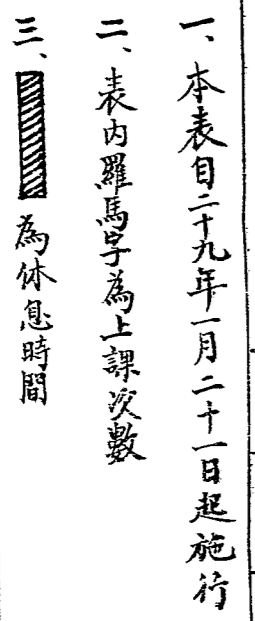 一、本表自二十九年一月二十一日起施行
二、表内羅馬字為上課次數
三、為休息時間